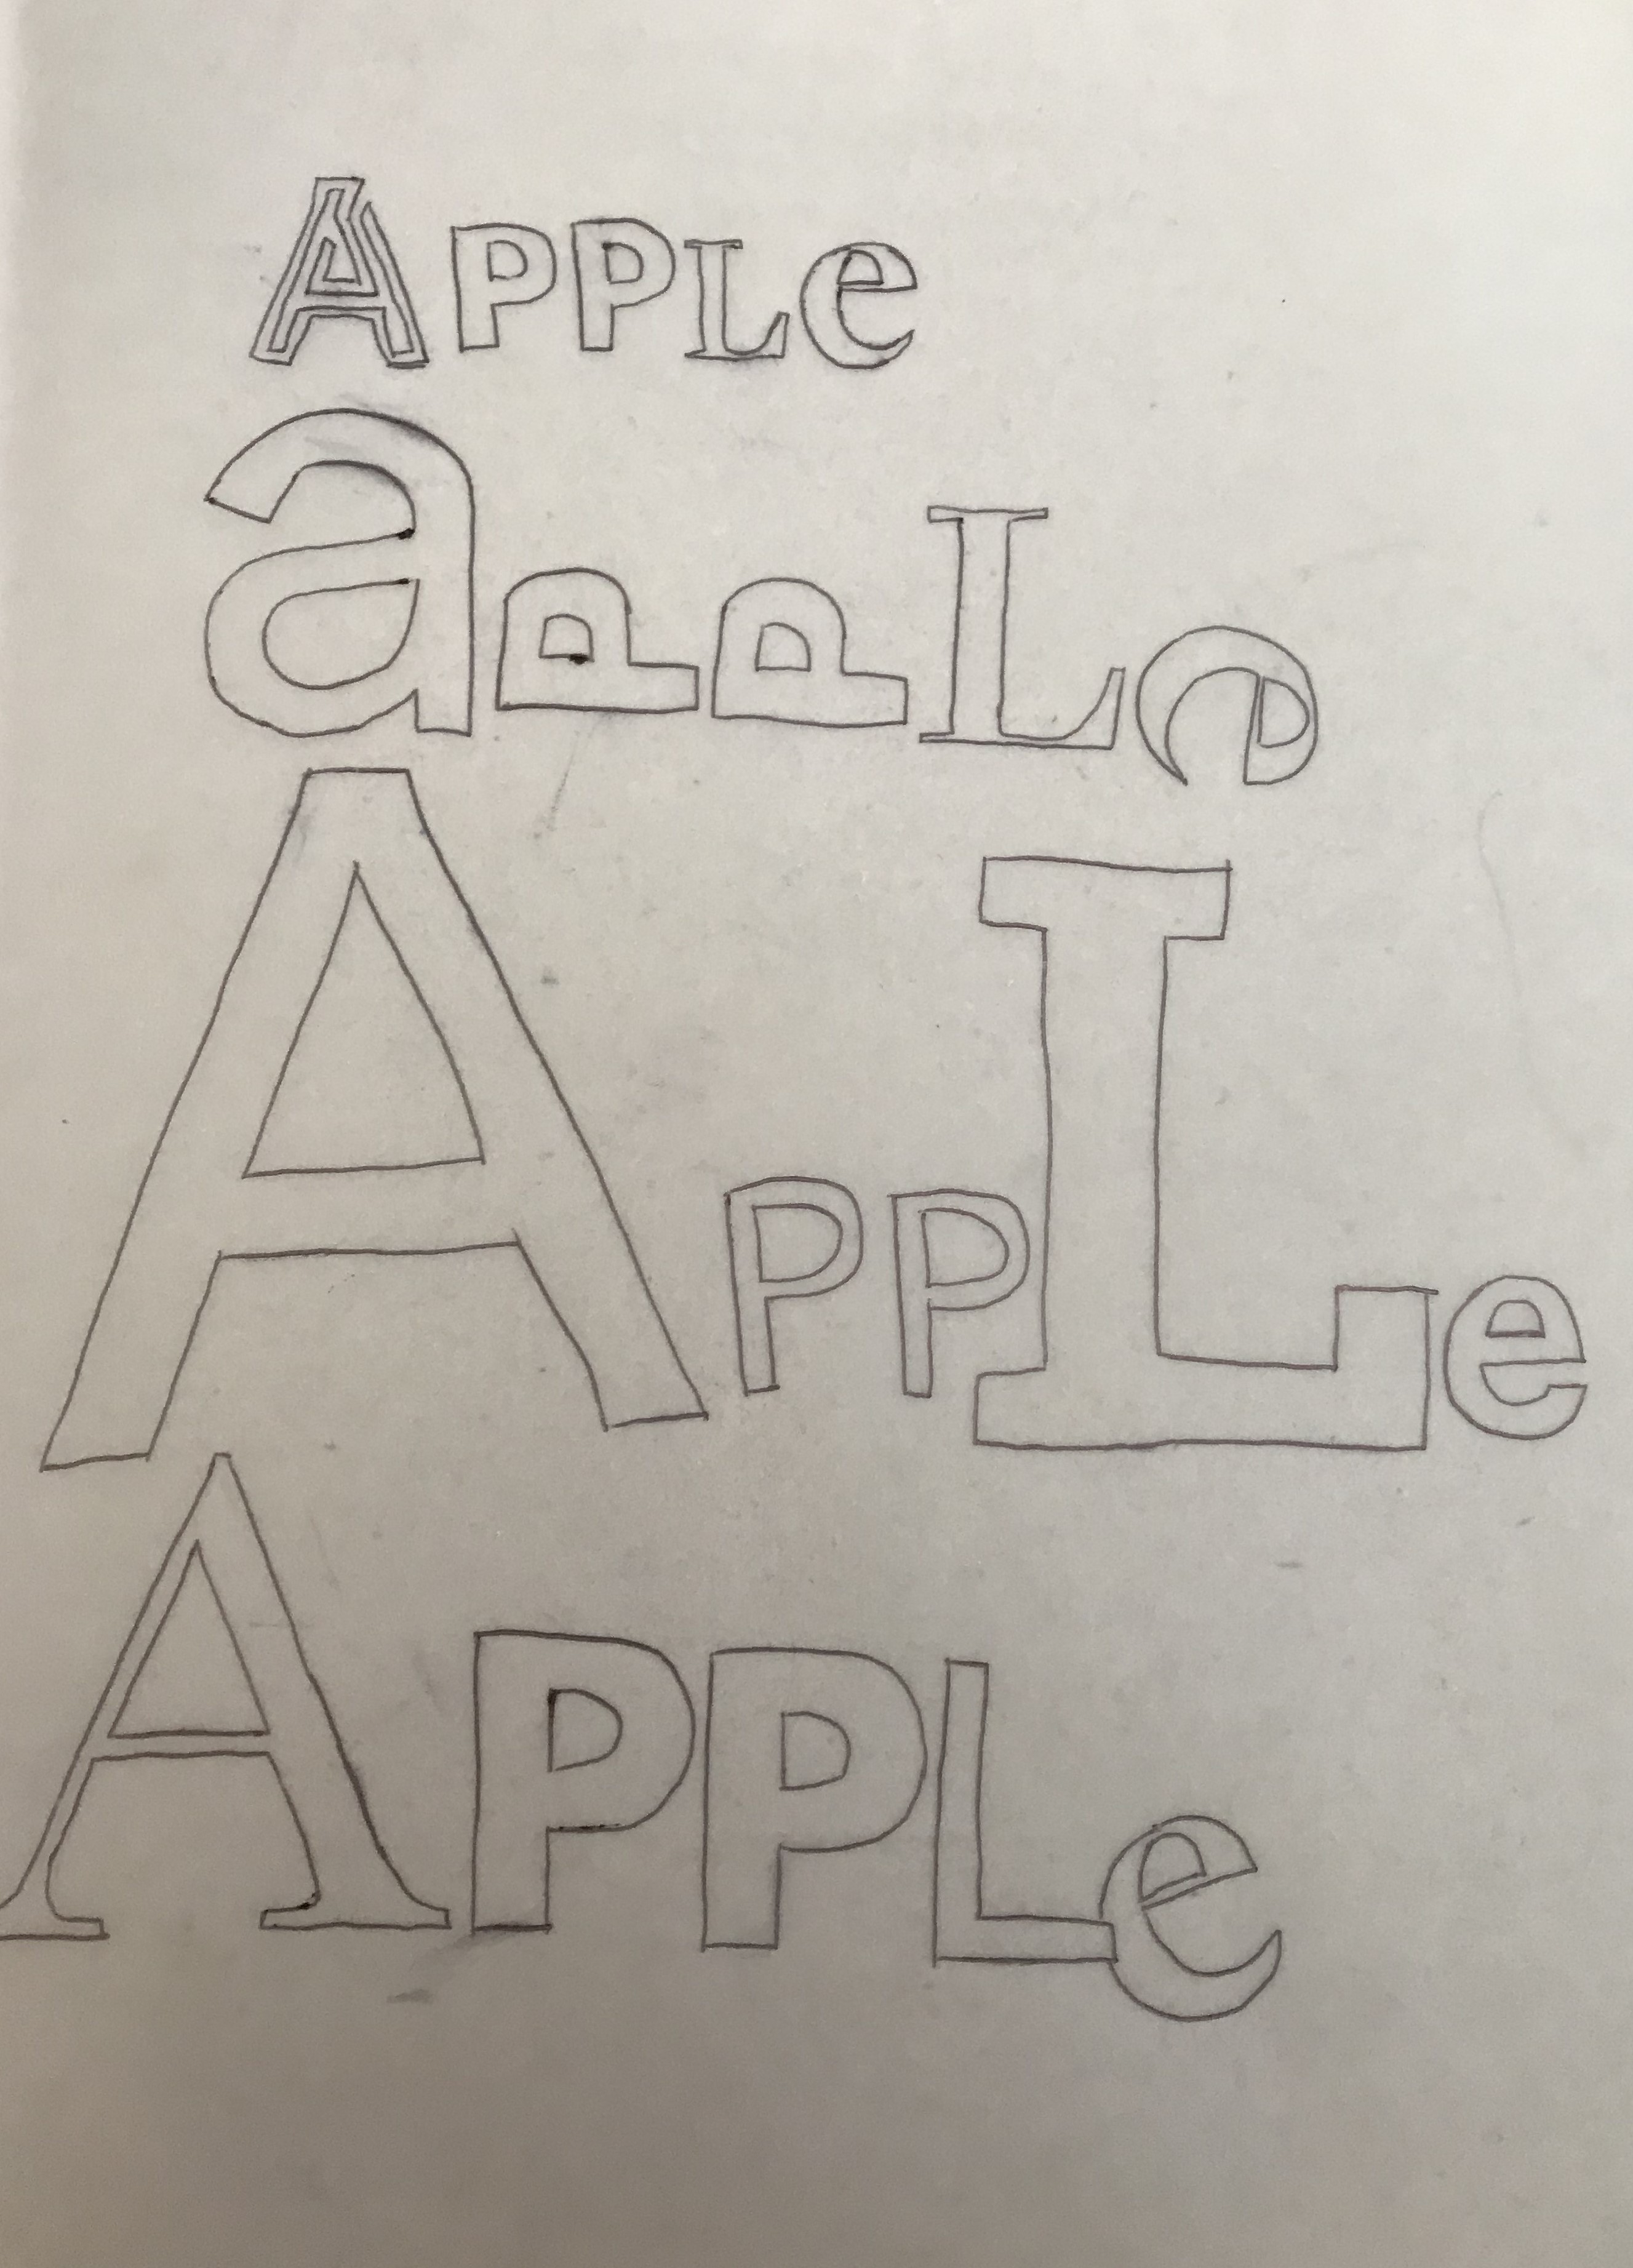 APPLe
aPPLe
APPLe
APPLe